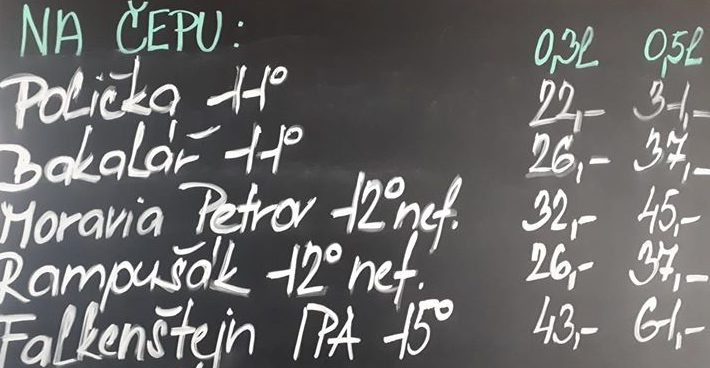 NA ČEPU: 0,3l 0,5l
Polička 11° 22,- 31,-
Bakalář 11° 26,- 37,-
Moravia Petrov 12° nef. 32,- 45,-
Rampušák 12° nef. 26,- 37,-
Falkenštejn IPA 15° 43,- 61,-